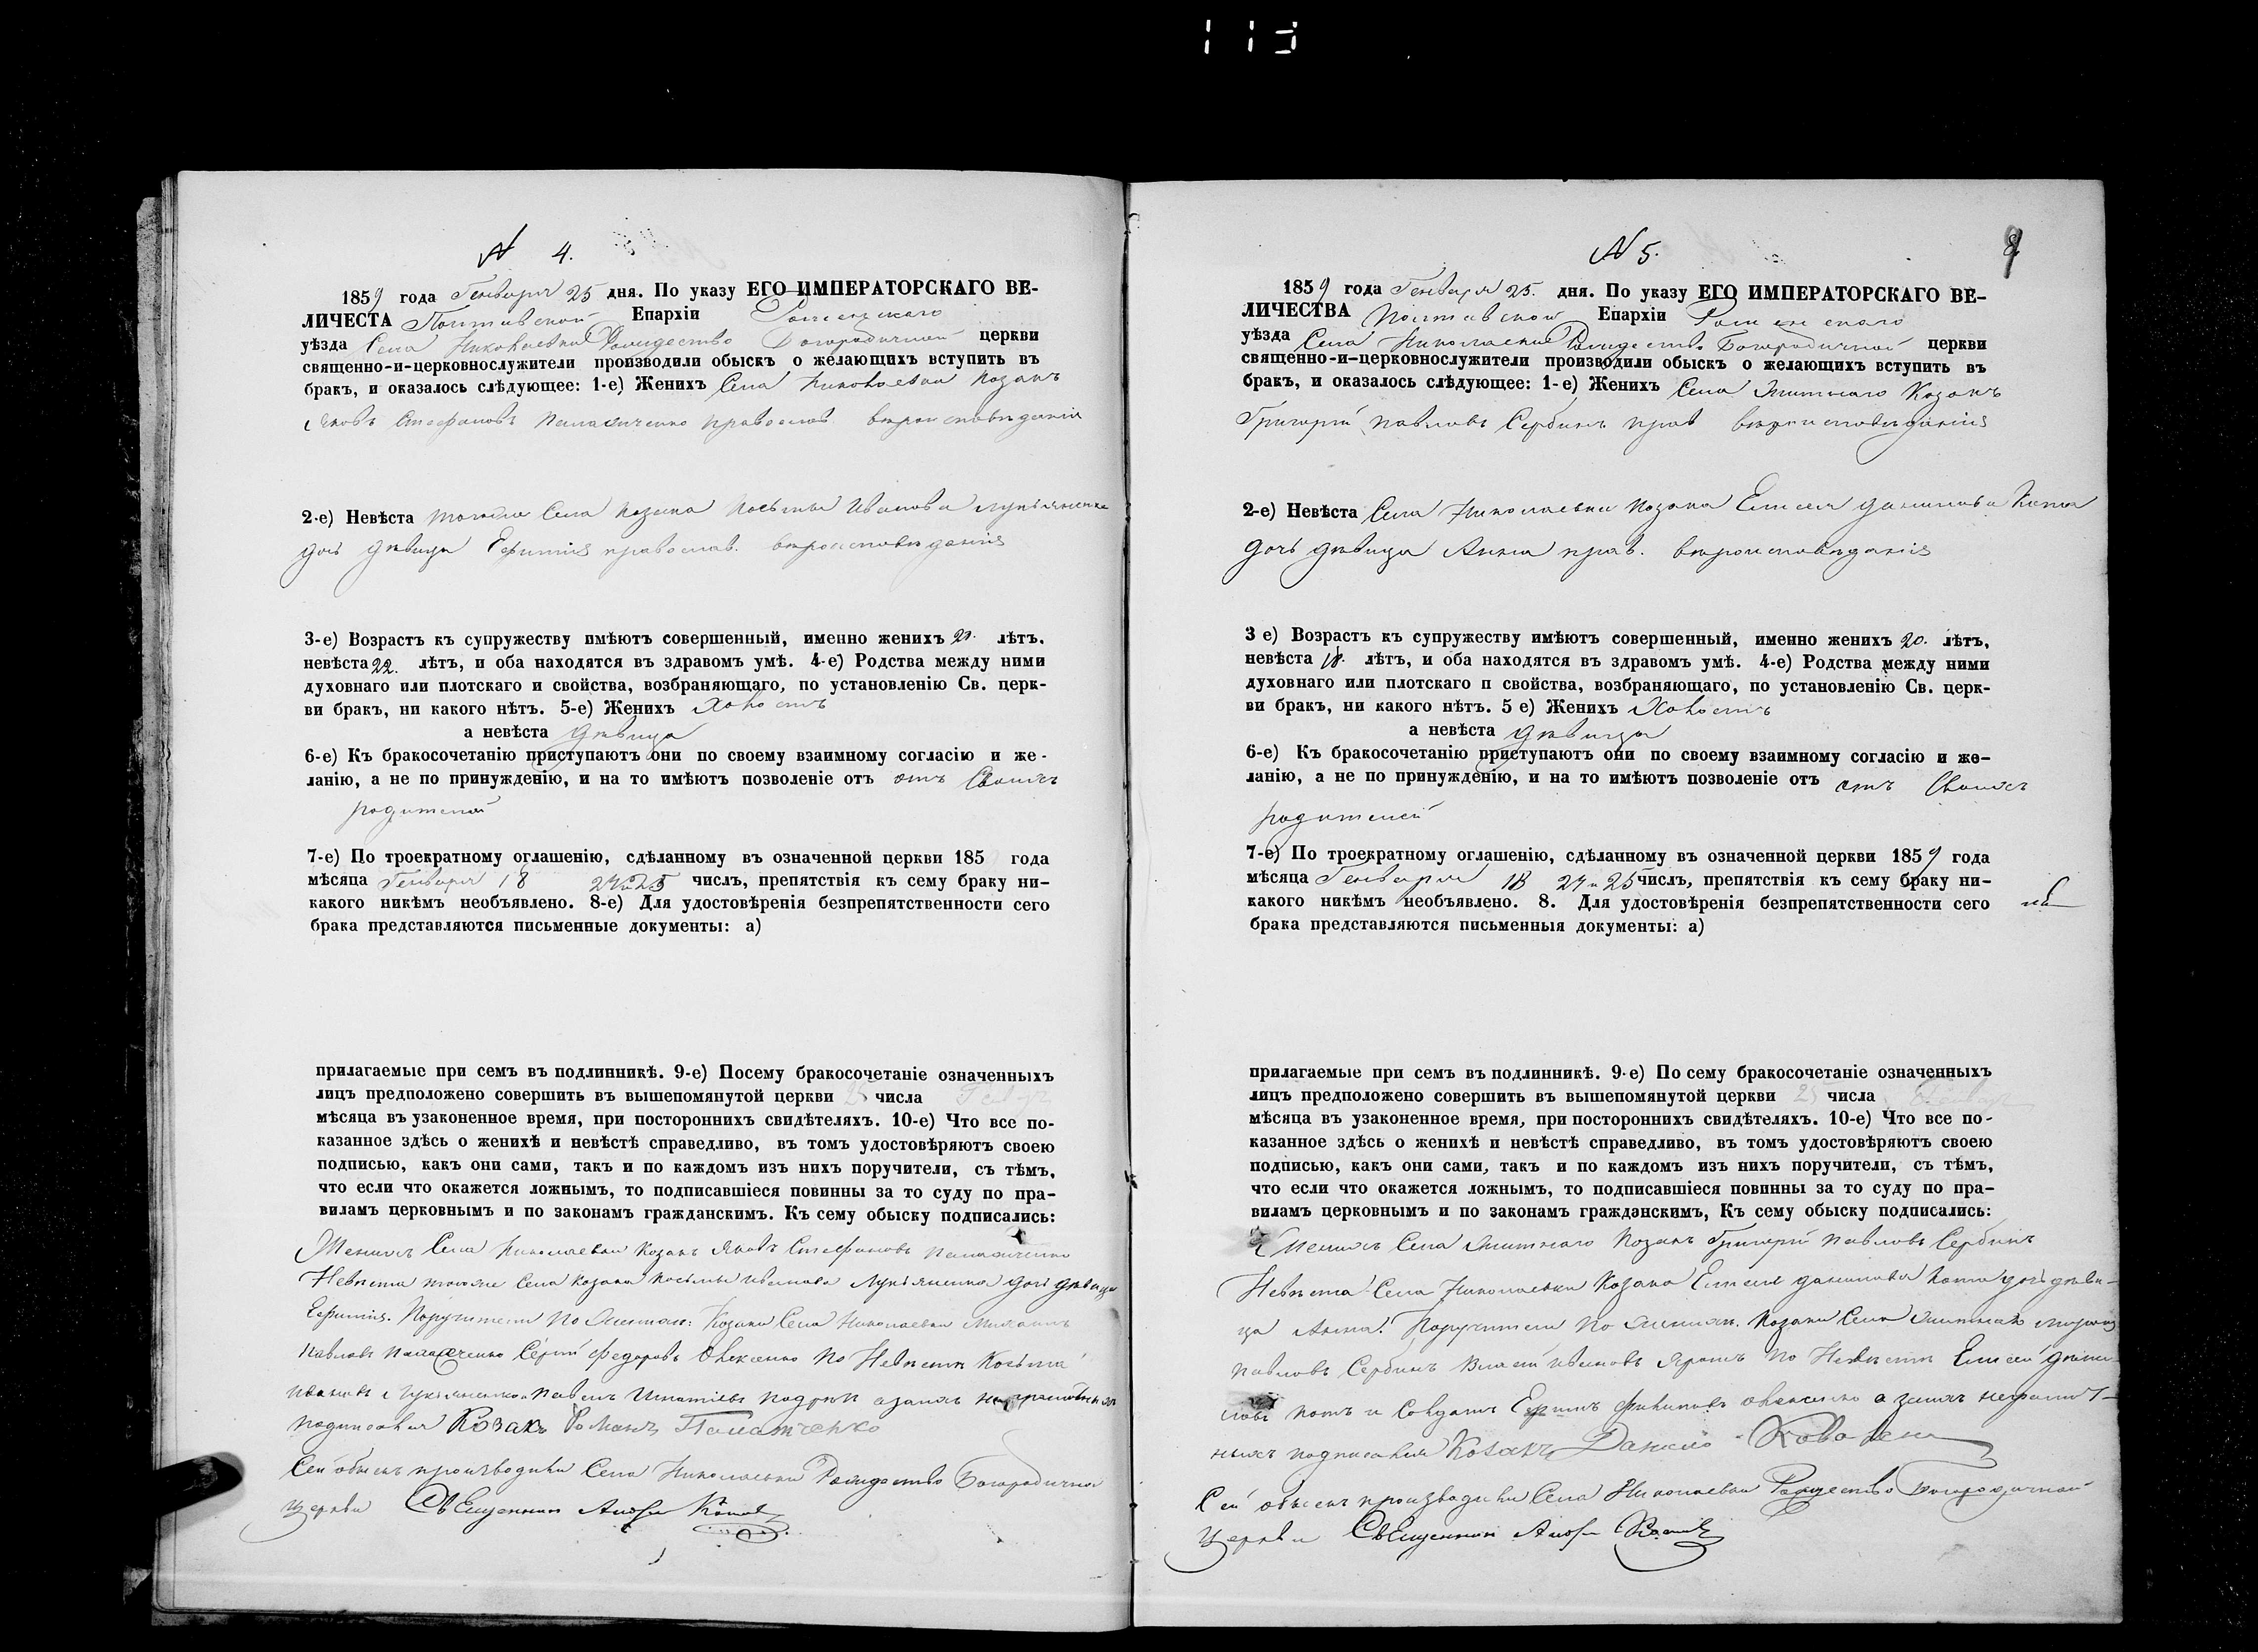 113
N 4.
1859 года Генваря 25 дня. По указу ЕГО ИМПЕРАТОРСКАГО ВЕ-
ЛИЧЕСТА Полтавской Епархіи Роменскаго
уѣзда Села Николаевки Рождество Богородичной церкви
священно-и-церковнослужители производили обыскъ о желающихъ вступить въ
бракъ, и оказалось слѣдующее: 1-е) Женихъ Села Николаевки Козакъ
Яковъ Стефановъ православ вѣроисповѣданія
2-е) Невѣста тогоже Села козака Косьмы Иванова Лукьяненка
дочь дѣвица Ефимія православ. вѣроисповѣданія
3-е) Возрастъ къ супружеству имѣютъ совершенный, именно женихъ лѣтъ.
невѣста 22. лѣтъ, и оба находятся въ здравомъ умѣ. 4-е) Родства между ними
духовнаго или плотскаго и свойства, возбраняющаго, по установленію Св. церк-
ви бракъ, ни какого нѣтъ. 5-е) Женихъ Холостъ
а невѣста дѣвица
6-е) Къ бракосочетанію приступаютъ они по своему взаимному согласію и же-
ланію, а не по принужденію, и на то имѣютъ позволеніе отъ отъ Своихъ
родителей
7-е) По троекратному оглашенію, сдѣланному въ означенной церкви 185 года
мѣсяца Генваря 18 24 и 25 числъ, препятствія къ сему браку ни-
какого никѣмъ необъявлено. 8-е) Для удостовѣренія безпрепятственности сего
брака представляются письменные документы: а)
прилагаемые при семъ въ подлинникѣ. 9-е) Посему бракосочетаніе означенныхъ
лицъ предположено совершить въ вышепомянутой церкви 25 числа Генвар
мѣсяца въ узаконенное время, при постороннихъ свидѣтеляхъ. 10-е) Что все по-
казанное здѣсь о женихѣ и невѣстѣ справедливо, въ томъ удостовѣряютъ своею
подписью, какъ они сами, такъ и по каждомъ изъ нихъ поручители, съ тѣмъ,
что если что окажется ложнымъ, то подписавшіеся повинны за то суду по пра-
виламъ церковнымъ и по законамъ гражданскимъ. Къ сему обыску подписались:
Женихъ Села Николаевки Козакъ Яковъ Стефановъ
Невѣста тогоже Села козака Косьмы Иванова Лукьяненка дочь дѣвица
Ефимія. Поручители по Жених: Козаки Села Николаевки Михаилъ
Павловъ Сергій Федоровъ Овсіенко по Невѣсте Косьма
Ивановъ Лукьяненко и Павелъ Игнатіевъ а заихъ
подписался Козакъ Романъ
Сей обыскъ производили Села Николаевки Рождество Богородичной
Церкви Священник
N 5.
9
1859 года Генваря 25. дня. По указу ЕГО ИМПЕРАТОРСКАГО ВЕ-
ЛИЧЕСТВА Полтавской Епархіи Роменскаго
уѣзда Села Николаевки Рождество Богородичной церкви
священно-и-церковнослужители производили обыскъ о желающихъ вступить въ
бракъ, и оказалось слѣдующее: 1-е) Женихъ Села Козакъ
Григорій Павловъ Сербинъ прав вѣроисповѣданія
2-е) Невѣста Села Николаевки козака Елисея Данилова Кота
дочь дѣвица Анна прав. вѣроисповѣданія
3 е) Возрастъ къ супружеству имѣютъ совершенный, именно женихъ 20. лѣтъ,
невѣста 18. лѣтъ, и оба находятся въ здравомъ умѣ. 4-е) Родства между ними
духовнаго или плотскаго п свойства, возбраняющаго, по установленію Св. церк-
ви бракъ, ни какого нѣтъ. 5 е) Женихъ Холостъ
а невѣста дѣвица
6-е) Къ бракосочетанію приступаютъ они по своему взаимному согласію и же-
ланію, а не по принужденію, и на то имѣютъ позволеніе отъ отъ Своихъ
родителей
7-е) По троекратному оглашенію, сдѣланному въ означенной церкви 1859 года
мѣсяца Генваря 18 24 и 25 числъ, препятствія къ сему браку ни-
какого никѣмъ необъявлено. 8. Для удостовѣренія безпрепятственности сего
брака представляются письменныя документы: а)
прилагаемые при семъ въ подлинникѣ. 9-е) По сему бракосочетаніе означенныхъ
лицъ предположено совершить въ вышепомянутой церкви 25 числа Генвар
мѣсяца въ узаконенное время, при постороннихъ свидѣтеляхъ. 10-е) Что все по-
казанное здѣсь о женихѣ и невѣстѣ справедливо, въ томъ удостовѣряютъ своею
подписью, какъ они сами, такъ и по каждомъ изъ нихъ поручители, съ тѣмъ,
что если что окажется ложнымъ, то подписавшіеся повинны за то суду по пра-
виламъ церковнымъ и по законамъ гражданскимъ, Къ сему обыску подписались:
Женихъ Села Козакъ Григорій Павловъ Сербинъ
Невѣста Села Николаевки Козака Елисея Данилова Кота дочь дѣви-
ца Анна. Поручители по Жених. Козаки Села
Павловъ Сербинъ Власій Ивановъ по Невѣсте Елисей Дани-
ловъ Котъ и Солдатъ а заихъ неграмот-
ныхъ подписался Козакъ Данило
Сей обыскъ производили Села Николаевки Рождество Богородичной
Церкви Священник